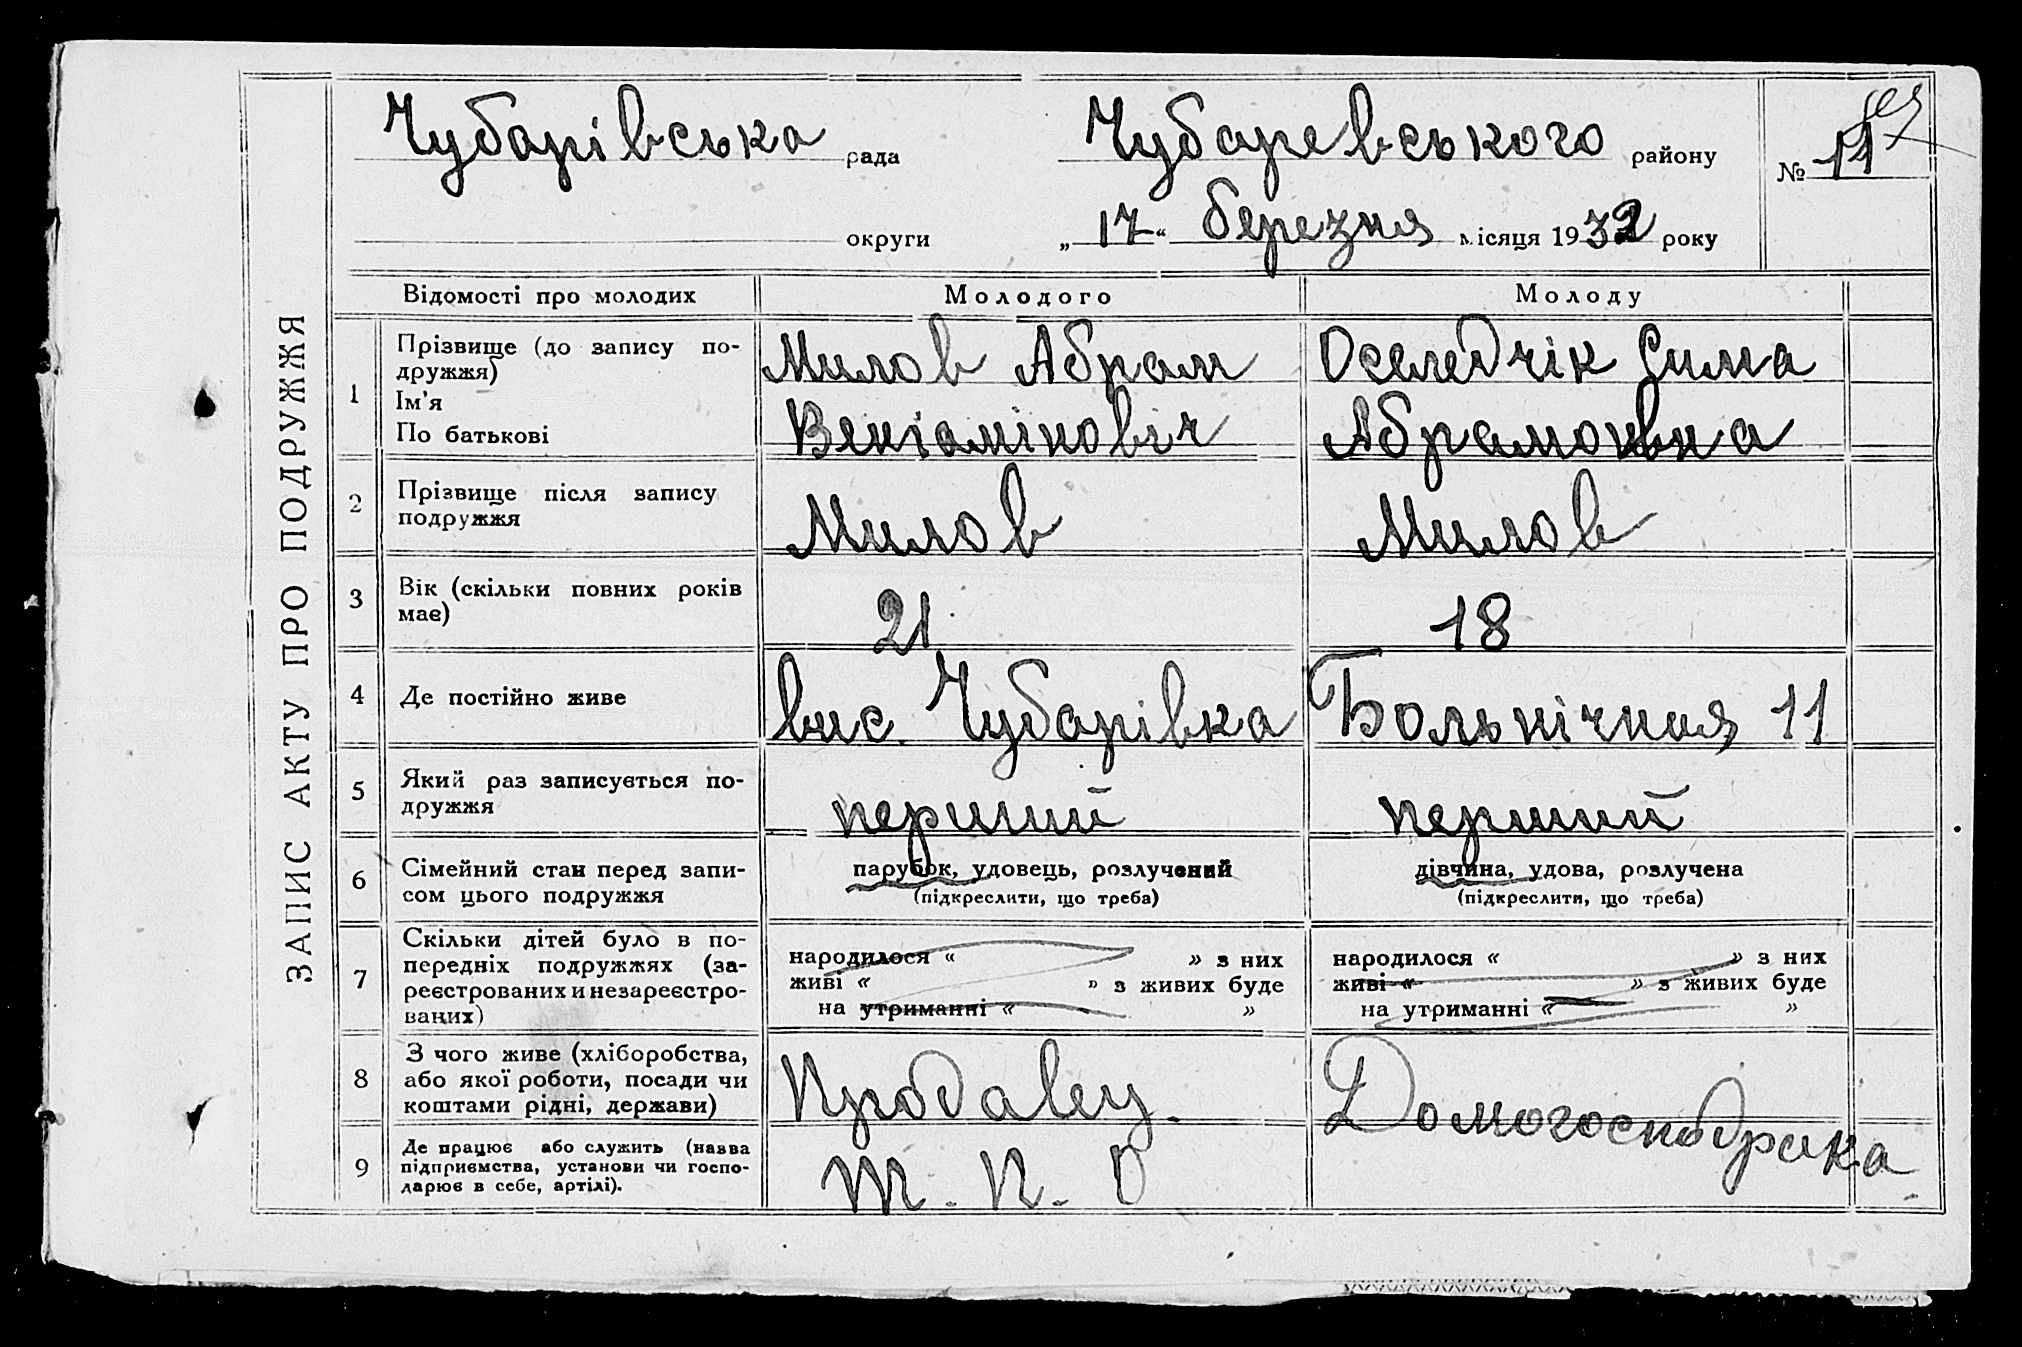 ЗАПИС АКТУ ПРО ПОДРУЖЖЯ
Чубарівська рада Чубаревського району № 11
округи „ 17 “ березня місяця 1932 року
Відомості про молодих Молодого Молоду
1 Прізвище (до запису по-
дружжя)
Ім'я
По батькові
Милов Абрам
Веніаміновіч
Оселедчік Сима
Абрамовна
2 Прізвище після запису
подружжя
Милов Милов
3 Вік (скільки повних років
має)
21 18
4 Де постійно живе
вис. Чубарівка Больнічная 11
5 Який раз записується по-
дружжя
перший перший
6 Сімейний стан перед запи-
сом цього подружжя
парубок, удовець, розлучений
(підкреслити, що треба)
дівчина, удова, розлучена
(підкреслити, що треба)
7 Скільки дітей було в по-
передніх подружжях (за-
реєстрованих и незареєстро-
ваних)
народилося « » з них
живі « » з живих буде
на утриманні « »
народилося « » з них
живі « » з живих буде
на утриманні « »
8 З чого живе (хліборобства,
або якої роботи, посади чи
коштами рідні, держави)
Продавец. Домогосподрика
9 Де працює або служить (назва
підприємства, установи чи госпо-
дарює в себе, артілі).
Т. П. О